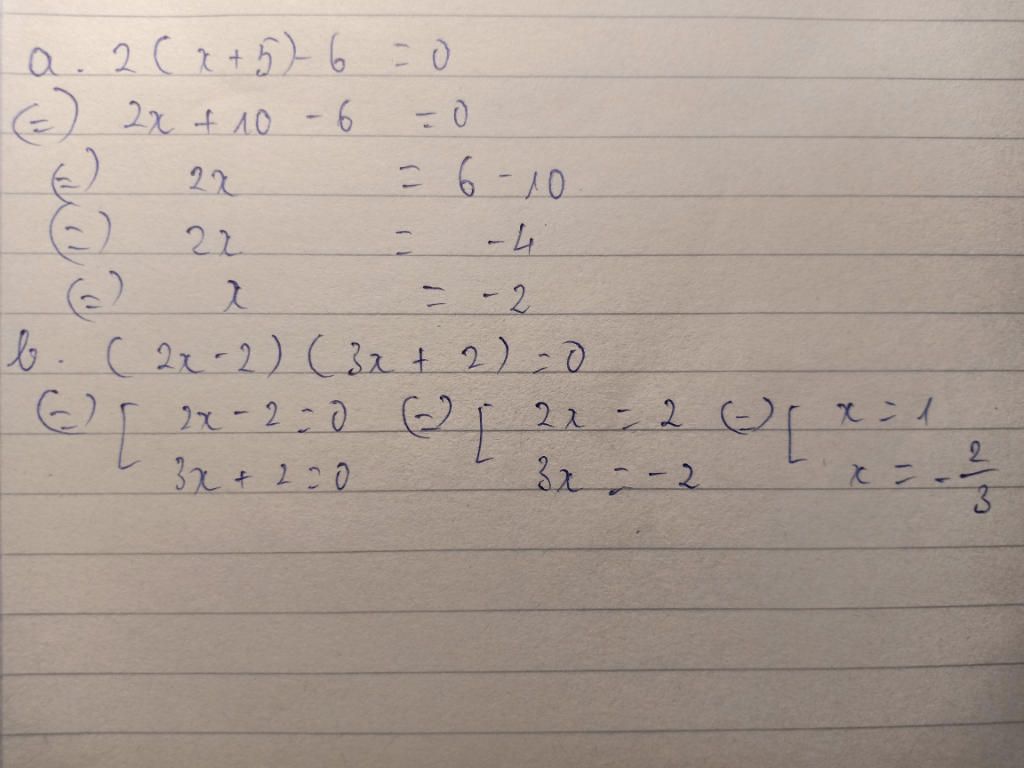 a. 2(x+5)-6 = 0
(=) 2x + 10 - 6 = 0
(=) 2x = 6 - 10
(=) 2x = -4
(=) x = -2
b. (2x-2)(3x+2) = 0
(=) [ 2x - 2 = 0 (=) [ 2x = 2 (=) [ x = 1
3x + 2 = 0 3x = -2 x = -2/3